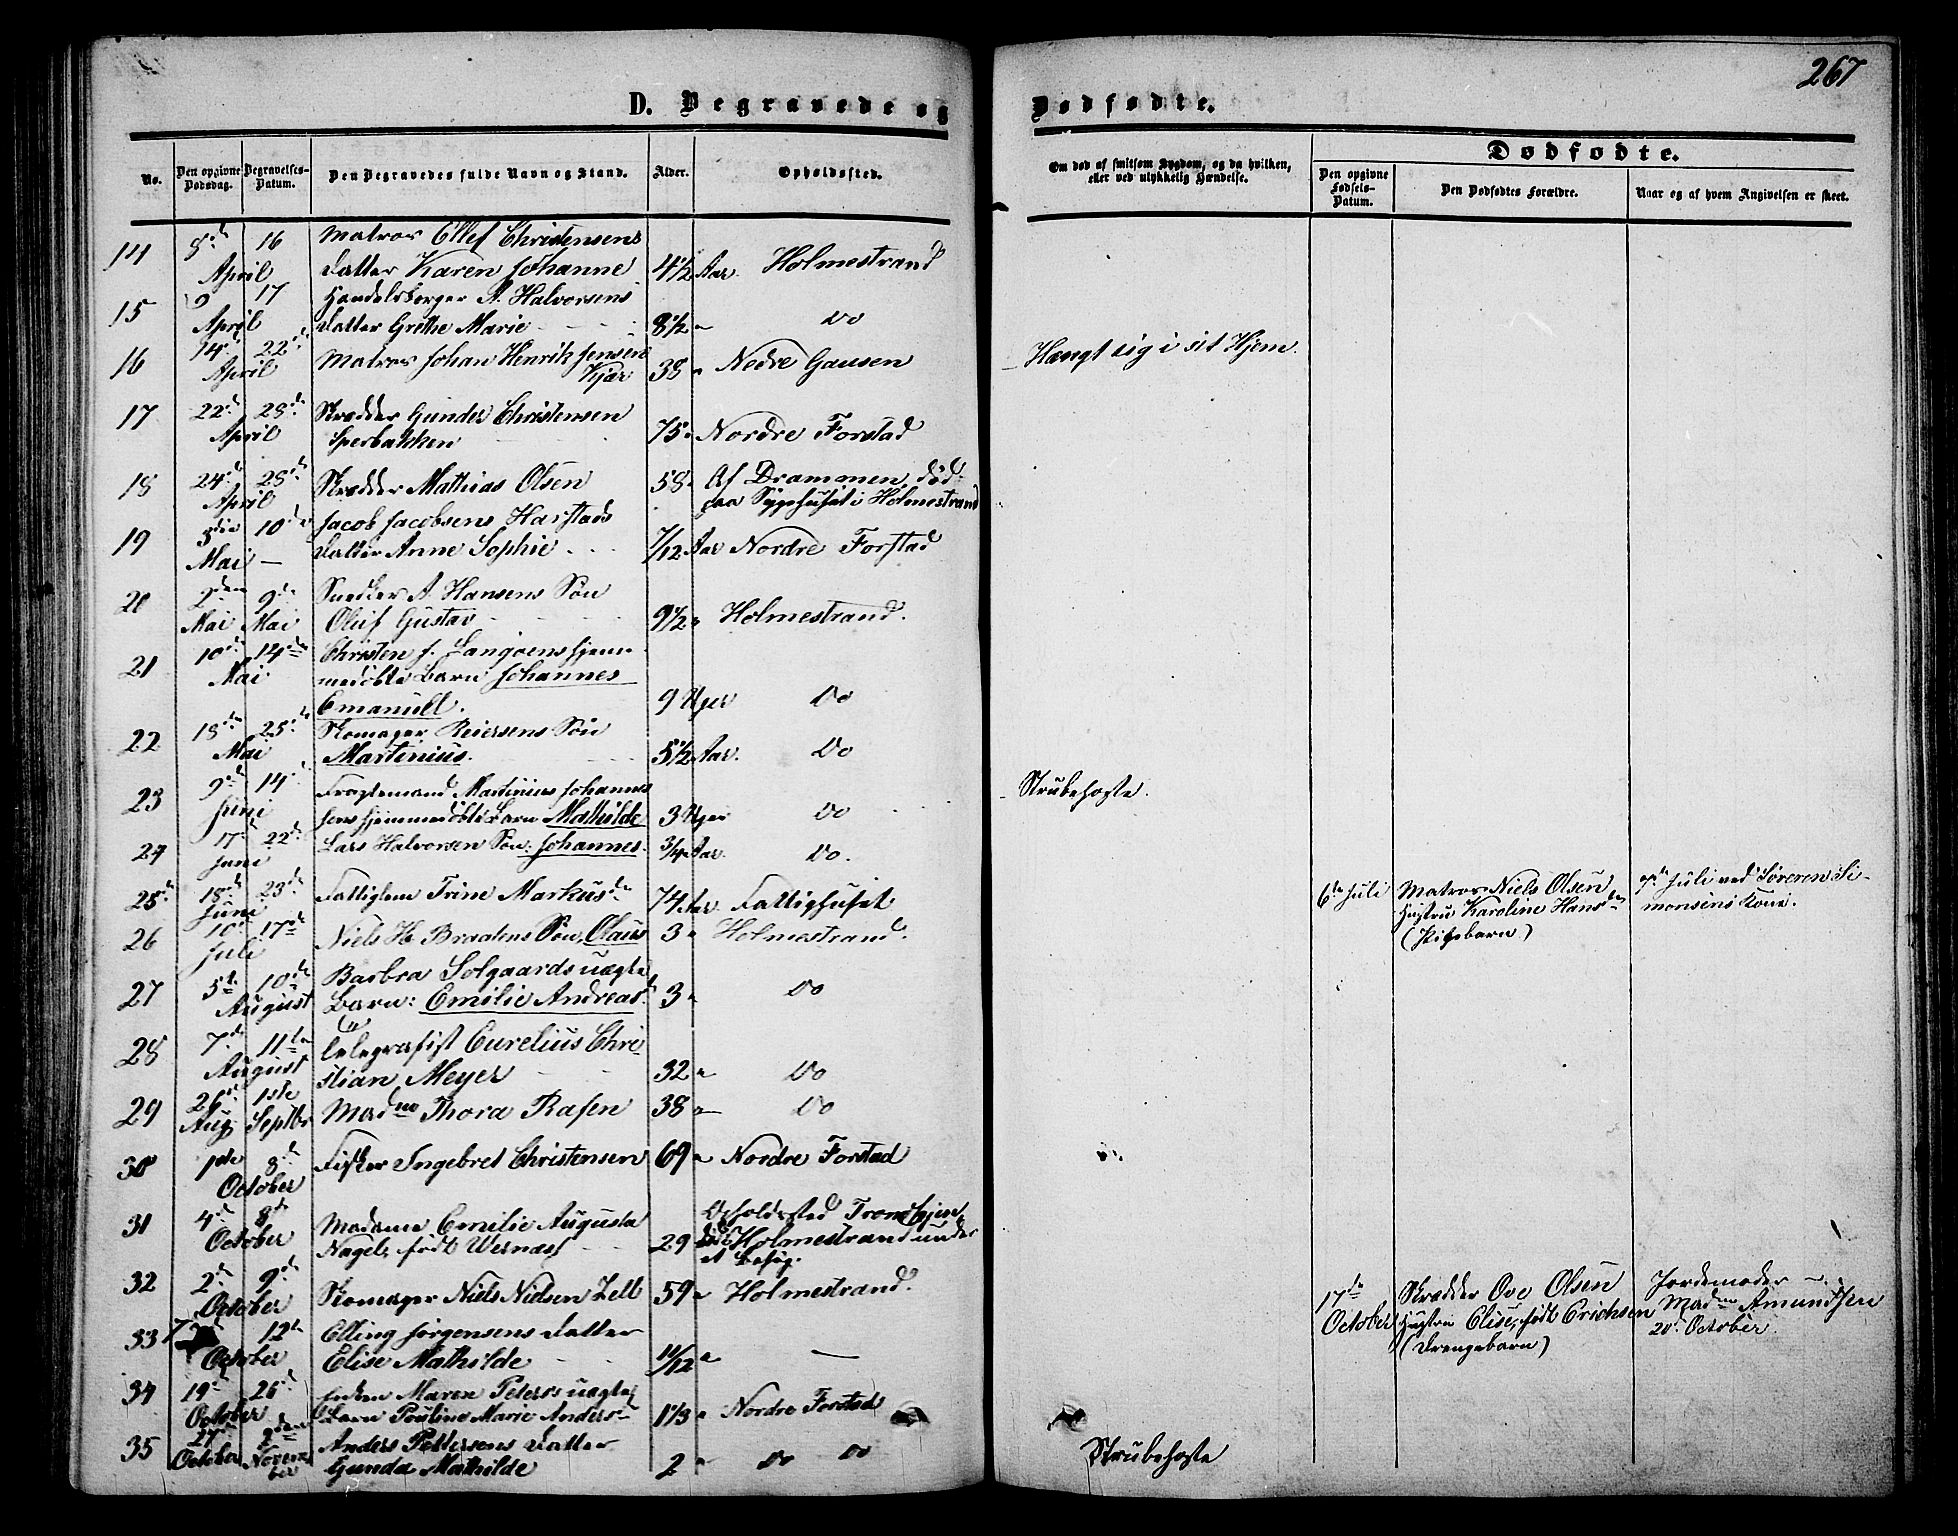 267
D. Begravede og Dødfødte.
No. Den opgivne Dødsdag. Begravelses-Datum. Den Begravedes fulde Navn og Stand. Alder. Opholdssted.
Om død af smitsom Sygdom, og da hvilken, eller ved ulykkelig Hændelse.
Dødfødte.
Den opgivne Fødsels-Datum. Den Dødfødtes Forældre. Naar og af hvem Angivelsen er skeet.
14 8de 16 Matros Ellef Christensens
April Datter Karen Johanne 4 1/2 Aar. Holmestrand
15 9 17 Handelsborger A. Halvorsens
April Datter Grethe Marie 8 1/2 " Do
16 14de 22de Matros Johan Henrik Jensen
April Kjær 38 " Nedre Gausen Hængt sig i sit Hjem.
17 22de 28de Skrædder Gunder Christensen
April Sperbakken 75 " Nordre Forstad
18 24de 28de Skrædder Mathias Olsen 58 " Af Drammen, død
April paa Sygehuset i Holmestrand
19 3die 10de Jacob Jacobsens Harstads
Mai — Datter Anne Sophie 7/12 Aar Nordre Forstad
20 2den 9de Snedker A. Hansens Søn
Mai Mai Oluf Gustav 9 1/2 " Holmestrand.
21 10de 14de Christen J. Langøens hjem-
Mai medøbte Barn Johannes
Emanuell. 9 Uger Do
22 18de 25de Skomager Reiersens Søn
Mai Martinius. 5 1/2 Aar. Do
23 9de 14de Fragtemand Martinius Johannes
Juni sens hjemmedøbte Barn Mathilde 3 Uger Do Strubehoste.
24 17de 22de Lars Halvorsen Søn: Johannes. 3/4 Aar. Do.
Juni
25 18de 23de Fattiglem Trine Markusdr 74 Aar Fattighuset
Juni
6te Juli Matros Niels Olsen 7de Juli ved Søren Si-
Hustru Karoline Hansdr monsens Kone.
(Pigebarn)
26 10de 17de Niels H. Braatens Søn, Claus 3 " Holmestrand.
Juli
27 5te 10de Barbra Solgaards uægte
August Barn: Emilie Andreasd 3 " Do
28 7de 11te Telegrafist Curelius Chri-
August stian Meyer 32 " Do
29 26de 1ste Madme Thora Rasen 38 " Do
Aug. Septbr
30 1ste 8de Fisker Ingebret Christensen 69 " Nordre Forstad
October
31 4de 8de Madame Emilie Augusta Opholdssted Trondhjem,
October Nagel, født Wernøes 29 " død i Holmestrand under
et Besøg.
32 2de 9de Skomager Niels Nielsen Zell 59 " Holmestrand.
October
33 7 12te Elling Jørgensens Datter
October Elise Mathilde 11/12 " —
17de Skrædder Ove Olsen Jordemoder
October Hustru Elise, født Erichsen Madme Amundsen
(Drengebarn) 20de October.
34 19de 26de Enken Maren Peters's uægte
October Barn Pouline Marie Andersdr 1 1/3 " Nordre Forstad
35 27de 2den Anders Pettersens Datter
October Novem- Gunda Mathilde 2 " Do Do Strubehoste
ber